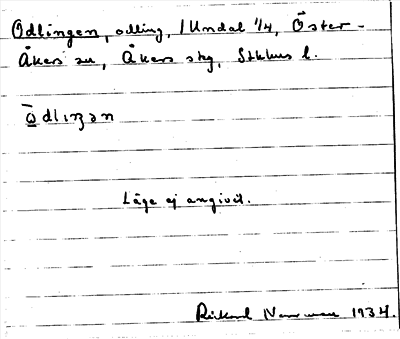 Odlingen, odling, i Undal 1/4, Öster-
Åkers sn, Åkers skg, Stkhms l.
ω̄dlıŋən
Läge ej angivet.
Rickard 1934.